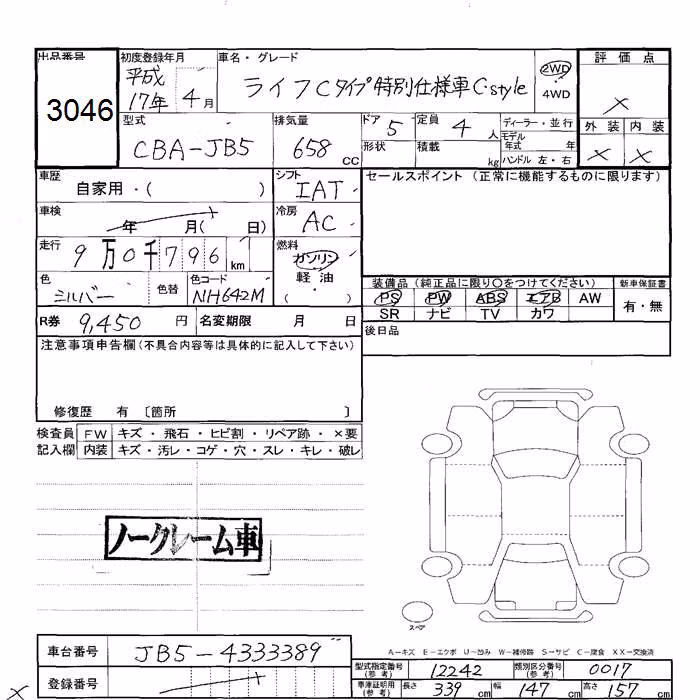 出品番号 初度登録年月 車名・グレード 評価点
3046 平成17年4月 ライフCタイプ特別仕様車C・style 2WD・4WD ×
外装 内装
× ×
型式 排気量 ドア 5 定員 4人 ディーラー・並行
CBA-JB5 658cc 形状 積載 kg モデル年式 年
ハンドル 左・右
車歴 自家用・( ) シフト IAT セールスポイント(正常に機能するものに限ります)
車検 年 月( 日) 冷房 AC
走行 9万0千796km 燃料 ガソリン
軽油・( )
色 シルバー 色替 色コード NH642M
装備品(純正品に限り○をつけてください) 新車保証書
PS PW ABS エアB AW 有・無
SR ナビ TV カワ
R券 9,450円 名変期限 月 日 後日品
注意事項申告欄(不具合内容等は具体的に記入して下さい)
修復歴 有 〔箇所 〕
検査員 FW キズ・飛石・ヒビ割・リペア跡・×要
記入欄 内装 キズ・汚レ・コゲ・穴・スレ・キレ・破レ
ノークレーム車
スペア
A－キズ E－エクボ U－凹み W－補修跡 S－サビ C－腐食 XX－交換済
車台番号 JB5-4333389
登録番号
型式指定番号(参考) 12242 類別区分番号(参考) 0017
車庫証明用(参考) 長さ 339cm 幅 147cm 高さ 157cm
×